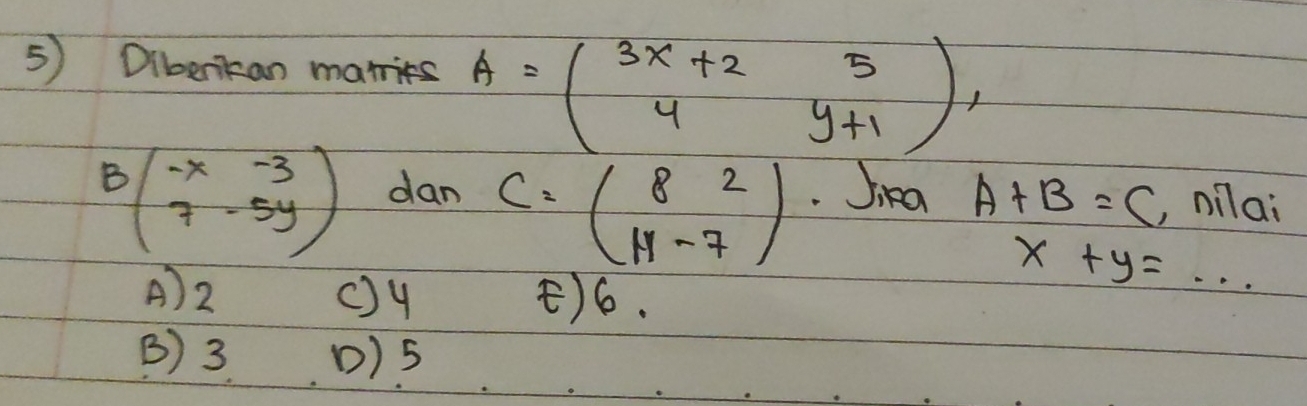 5) Diberikan matriks A = ( 3x + 2 5
4 y+1 ),
B ( -x -3
7 -5y ) dan C = ( 8 2
11 -7 ). Jika A + B = C, nilai
x + y = ...
A) 2 C) 4 E) 6.
B) 3 D) 5